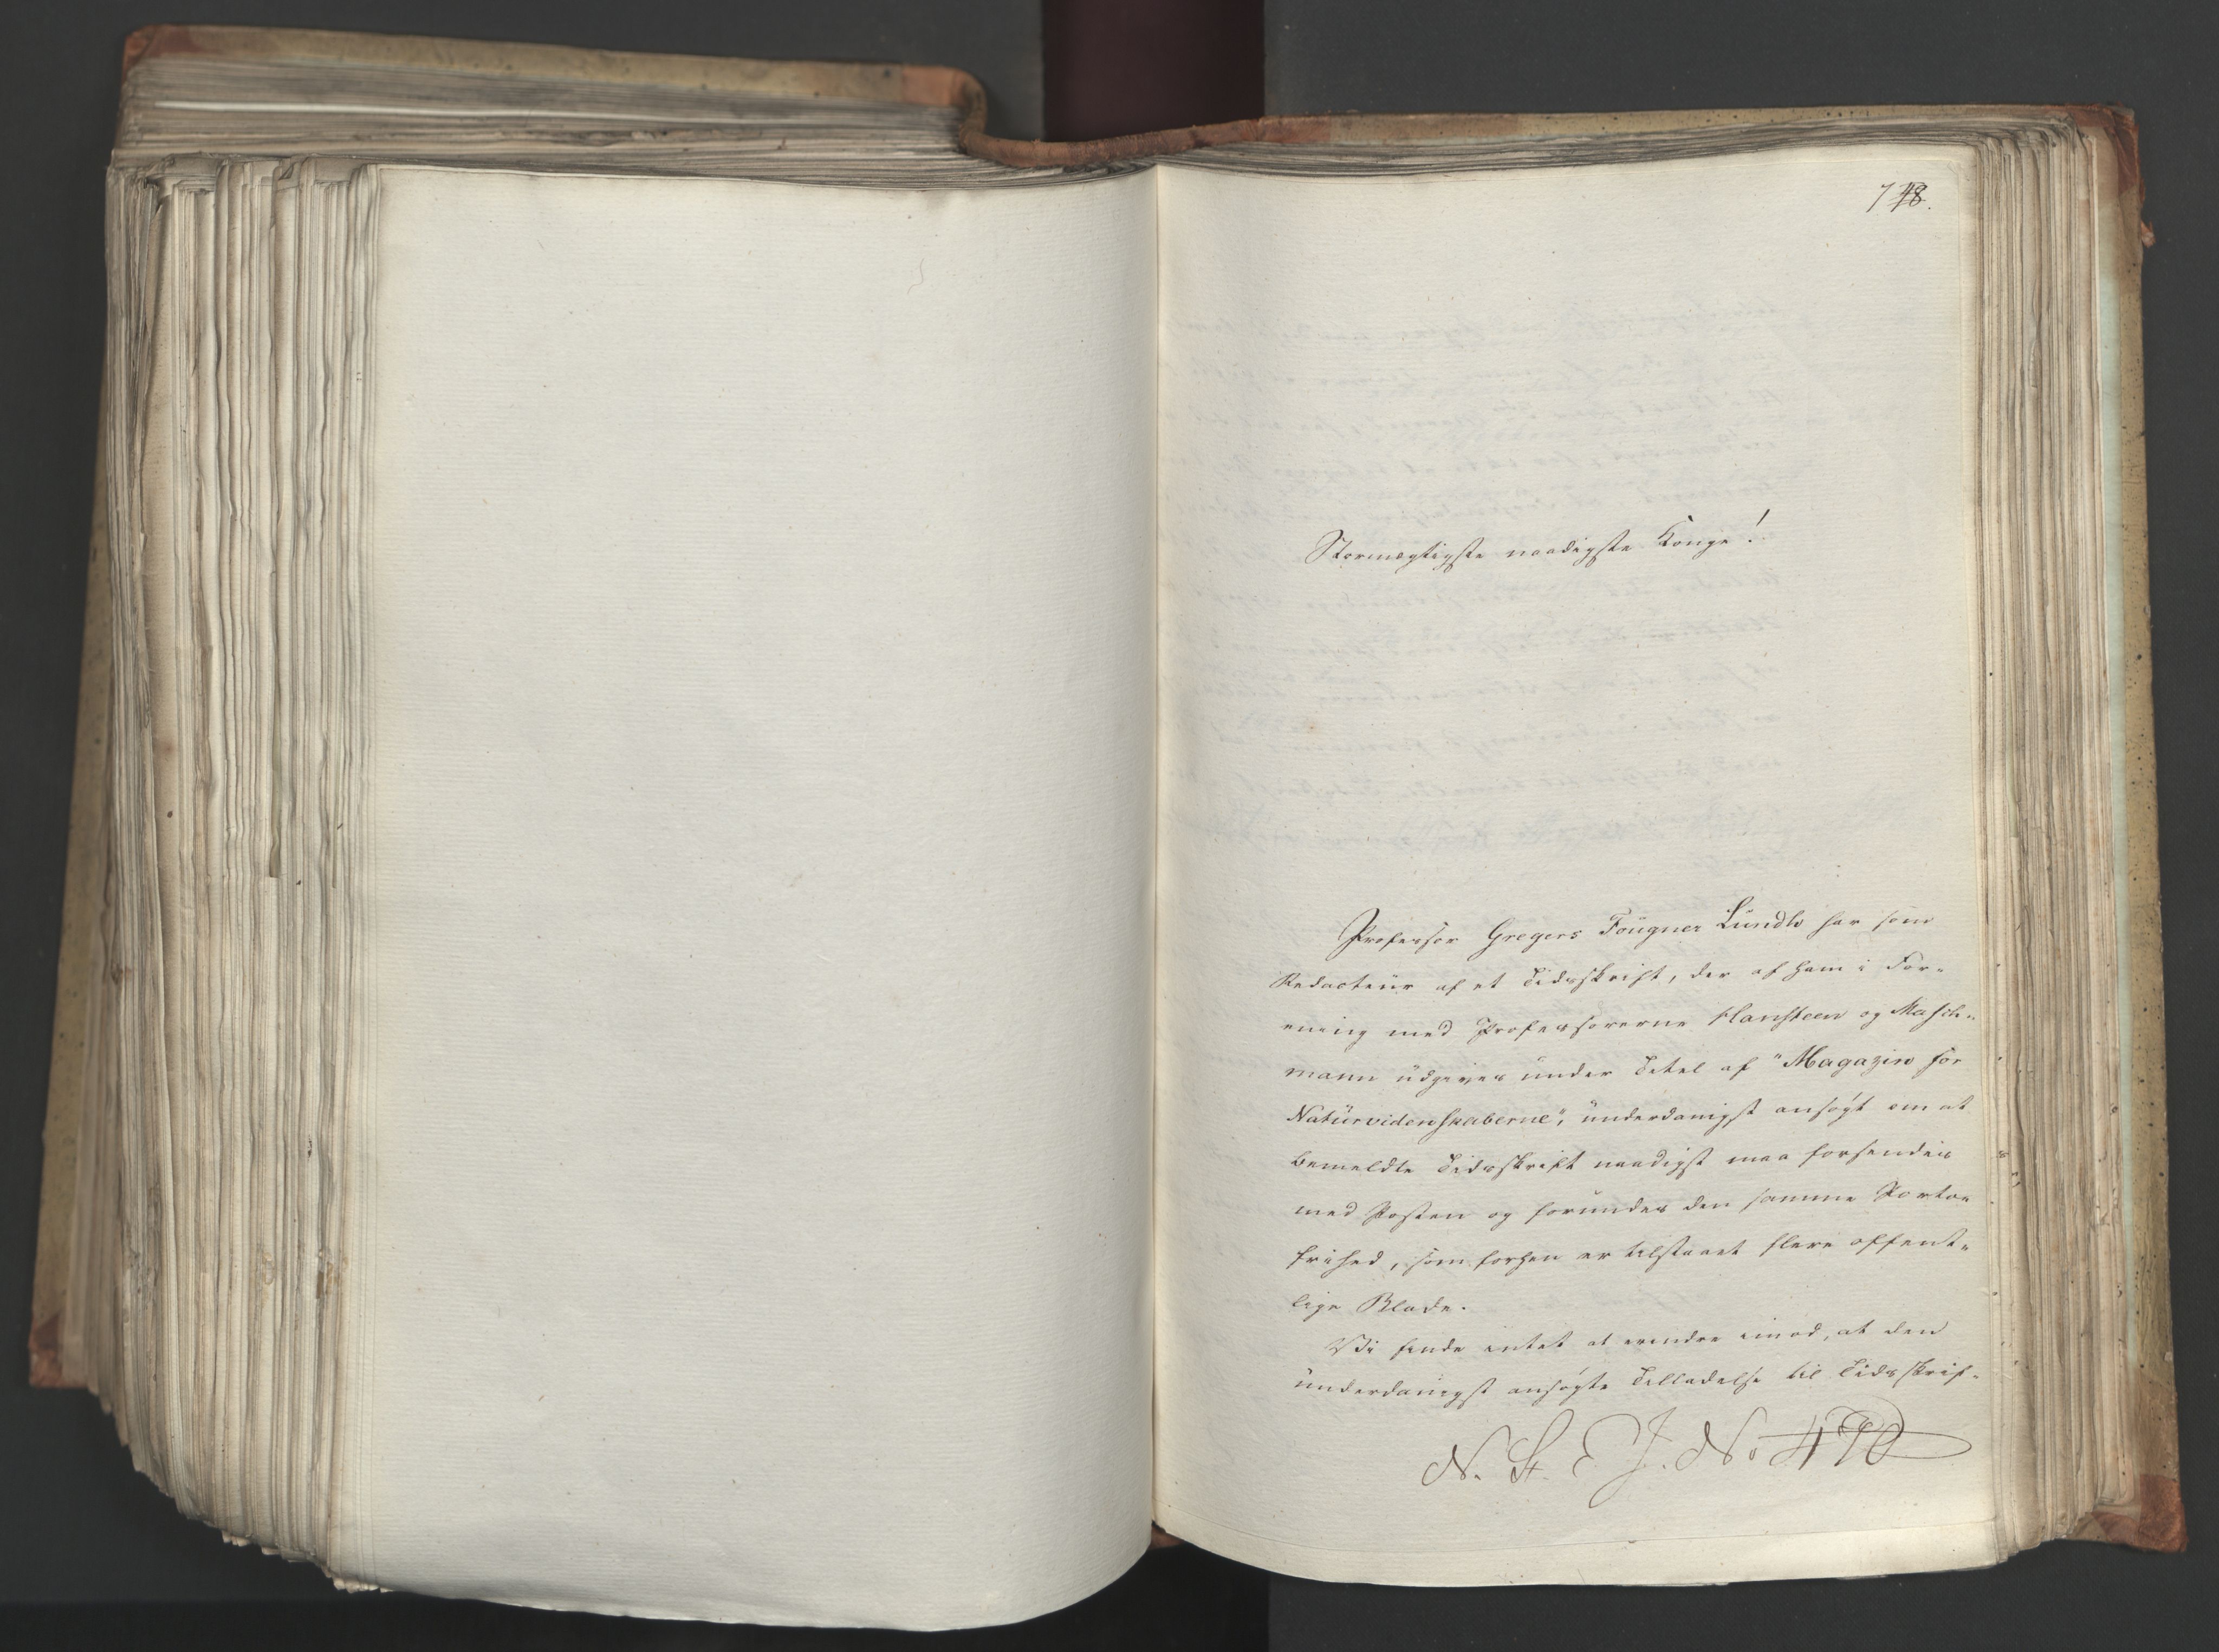 Stormægtigste naadigste Konge!
Professor Gregers Fougner Lundh har som
Redacteur af et Tidsskrift, der af ham i For-
ening med Professorerne Hansteen og Masch-
mann udgives under Titel af "Magazin for
Naturvidenskaberne", underdanigst ansøgt om at
bemeldte Tidsskrift naadigst maa forsendes
med Posten og forundes den samme Porto-
frihed, som forhen er tilstaaet flere offent-
lige Blade.
Vi finde intet at erindre imod, at den
underdanigst ansøgte Tilladelse til Tidsskrif-
N. St. E. J. No 490